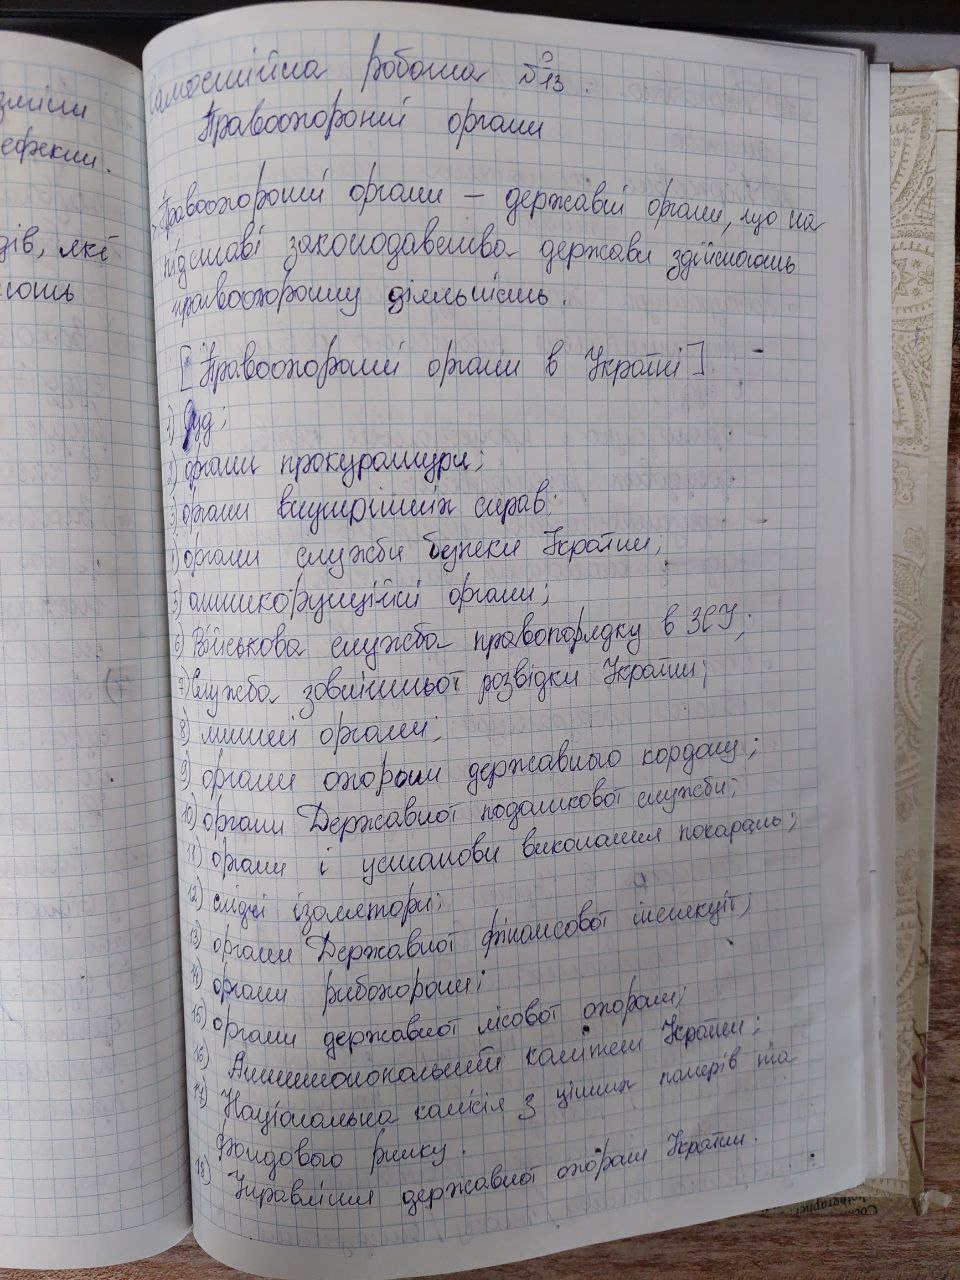 Самостійна робота №13.
Правоохороній органи
Правоохороній органи – державні органи, що на
підставі законодавства держави здійснюють
правоохоронну діяльність.
[Правоохороній органи в Україні]
1) Суд;
2) органи прокуратури;
3) органи внутрішніх справ;
4) органи служби безпеки України;
5) антикорупційні органи;
6) Військова служба правопорядку в ЗСУ;
7) служба зовнішньої розвідки України;
8) митні органи;
9) органи охорони державного кордону;
10) органи Державної податкової служби;
11) органи і установи виконання покарань;
12) слідчі ізолятори;
13) органи Державної фінансової інспекції;
14) органи рибохорони;
15) органи державної лісової охорони;
16) Антимонопольний комітет України;
17) Національна комісія з цінних паперів та
фондового ринку.
18) Управління державної охорони України.
зміни
ефекти.
дів, які
ють
17)